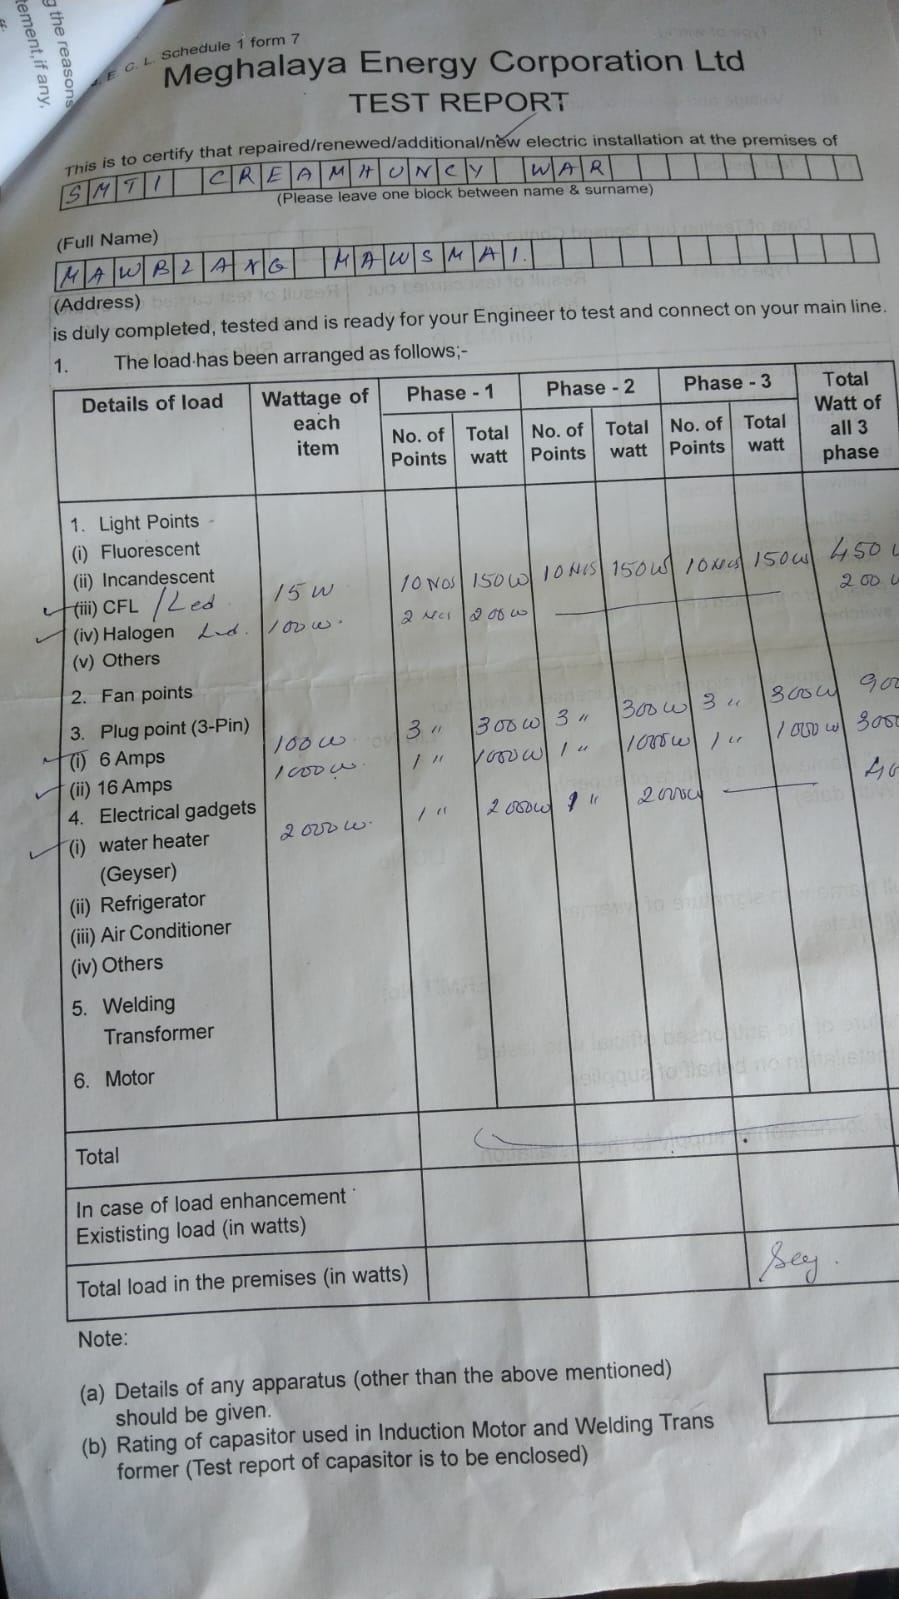 g the reasons
tement, if any,
E. C. L. Schedule 1 form 7
Meghalaya Energy Corporation Ltd
TEST REPORT
This is to certify that repaired/renewed/additional/new electric installation at the premises of
SMTI CREAMHUNCY WAR
(Please leave one block between name & surname)
(Full Name)
MAWBLANG MAWSMAI.
(Address)
is duly completed, tested and is ready for your Engineer to test and connect on your main line.
1. The load has been arranged as follows;-
Details of load Wattage of each item Phase - 1 Phase - 2 Phase - 3 Total Watt of all 3 phase
No. of Points Total watt No. of Points Total watt No. of Points Total watt
1. Light Points
(i) Fluorescent
(ii) Incandescent
(iii) CFL /Led 15 W 10 Nos 150W 10 Nos 150W 10 Nos 150W 450
(iv) Halogen Led. 100 W. 2 Nos 200 W 200
(v) Others
2. Fan points
3. Plug point (3-Pin)
(i) 6 Amps 100 W 3 " 300 W 3 " 300 W 3 " 300 W 900
(ii) 16 Amps 1000 W. 1 " 1000 W 1 " 1000 W 1 " 1000 W 3000
4. Electrical gadgets
(i) water heater 2000 W. 1 " 2000W 1 " 2000W
(Geyser)
(ii) Refrigerator
(iii) Air Conditioner
(iv) Others
5. Welding
Transformer
6. Motor
Total
In case of load enhancement
Exististing load (in watts)
Total load in the premises (in watts)
Note:
(a) Details of any apparatus (other than the above mentioned)
should be given.
(b) Rating of capasitor used in Induction Motor and Welding Trans
former (Test report of capasitor is to be enclosed)